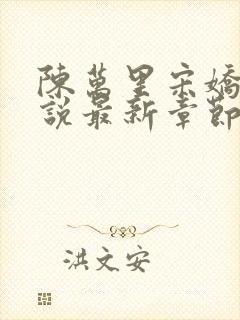 陳萬里宋嬌
說最新章節
洪文安